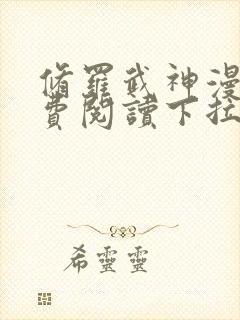 脩羅武神漫
費閱讀下拉
希靈靈